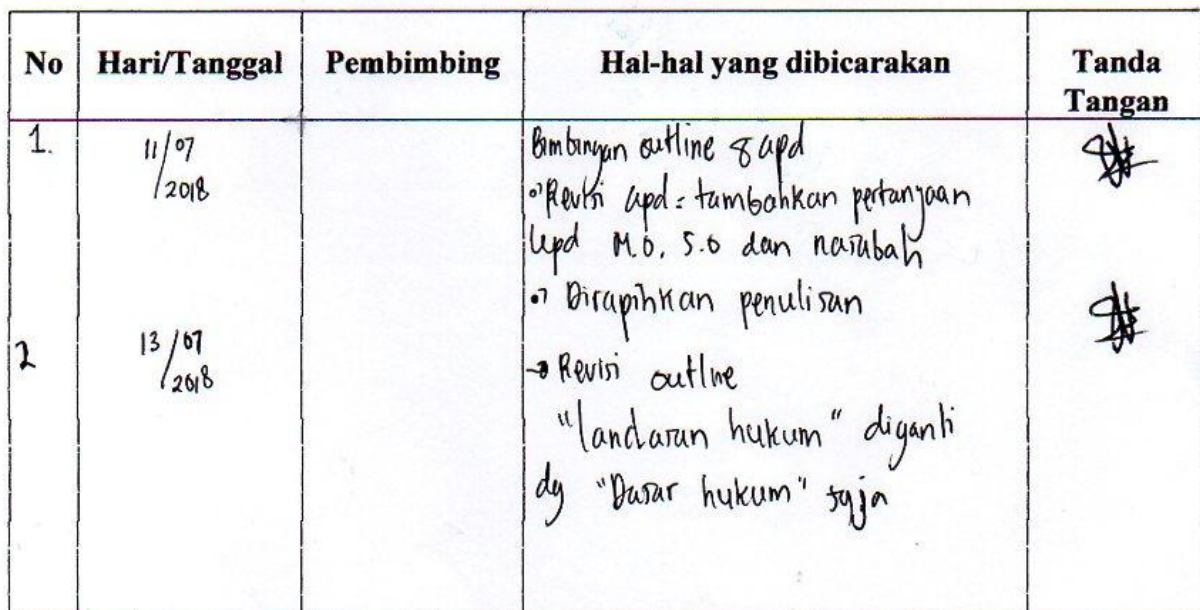 No Hari/Tanggal Pembimbing Hal-hal yang dibicarakan Tanda Tangan
1. 11/07/2018 Bimbingan outline & apd
Revisi apd = tambahkan pertanyaan
kpd M.O, S.O dan nasabah
Dirapihkan penulisan
2 13/07/2018 → Revisi outline
"landasan hukum" diganti
dg "Dasar hukum" saja